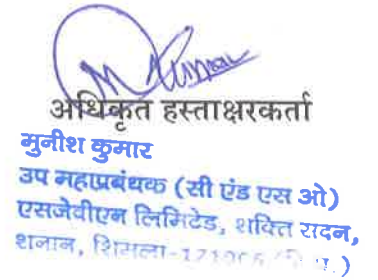 M Kumar
अधिकृत हस्ताक्षरकर्ता
मुनीश कुमार
उप महाप्रबंधक (सी एंड एस ओ)
एसजेवीएन लिमिटेड, शक्ति सदन,
शनान, शिमला-171006